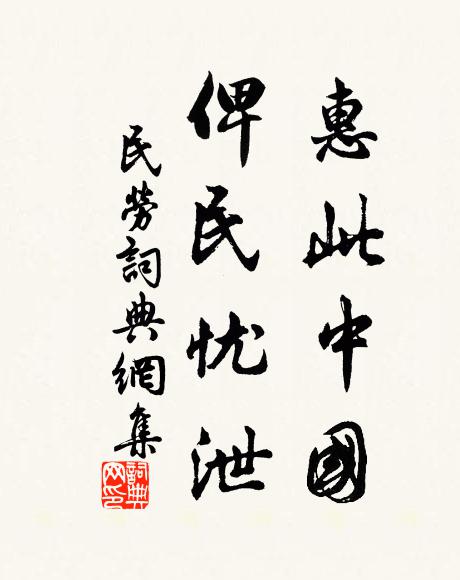 惠此中國
俾民忧泄
民勞詞典網集
詞典网印